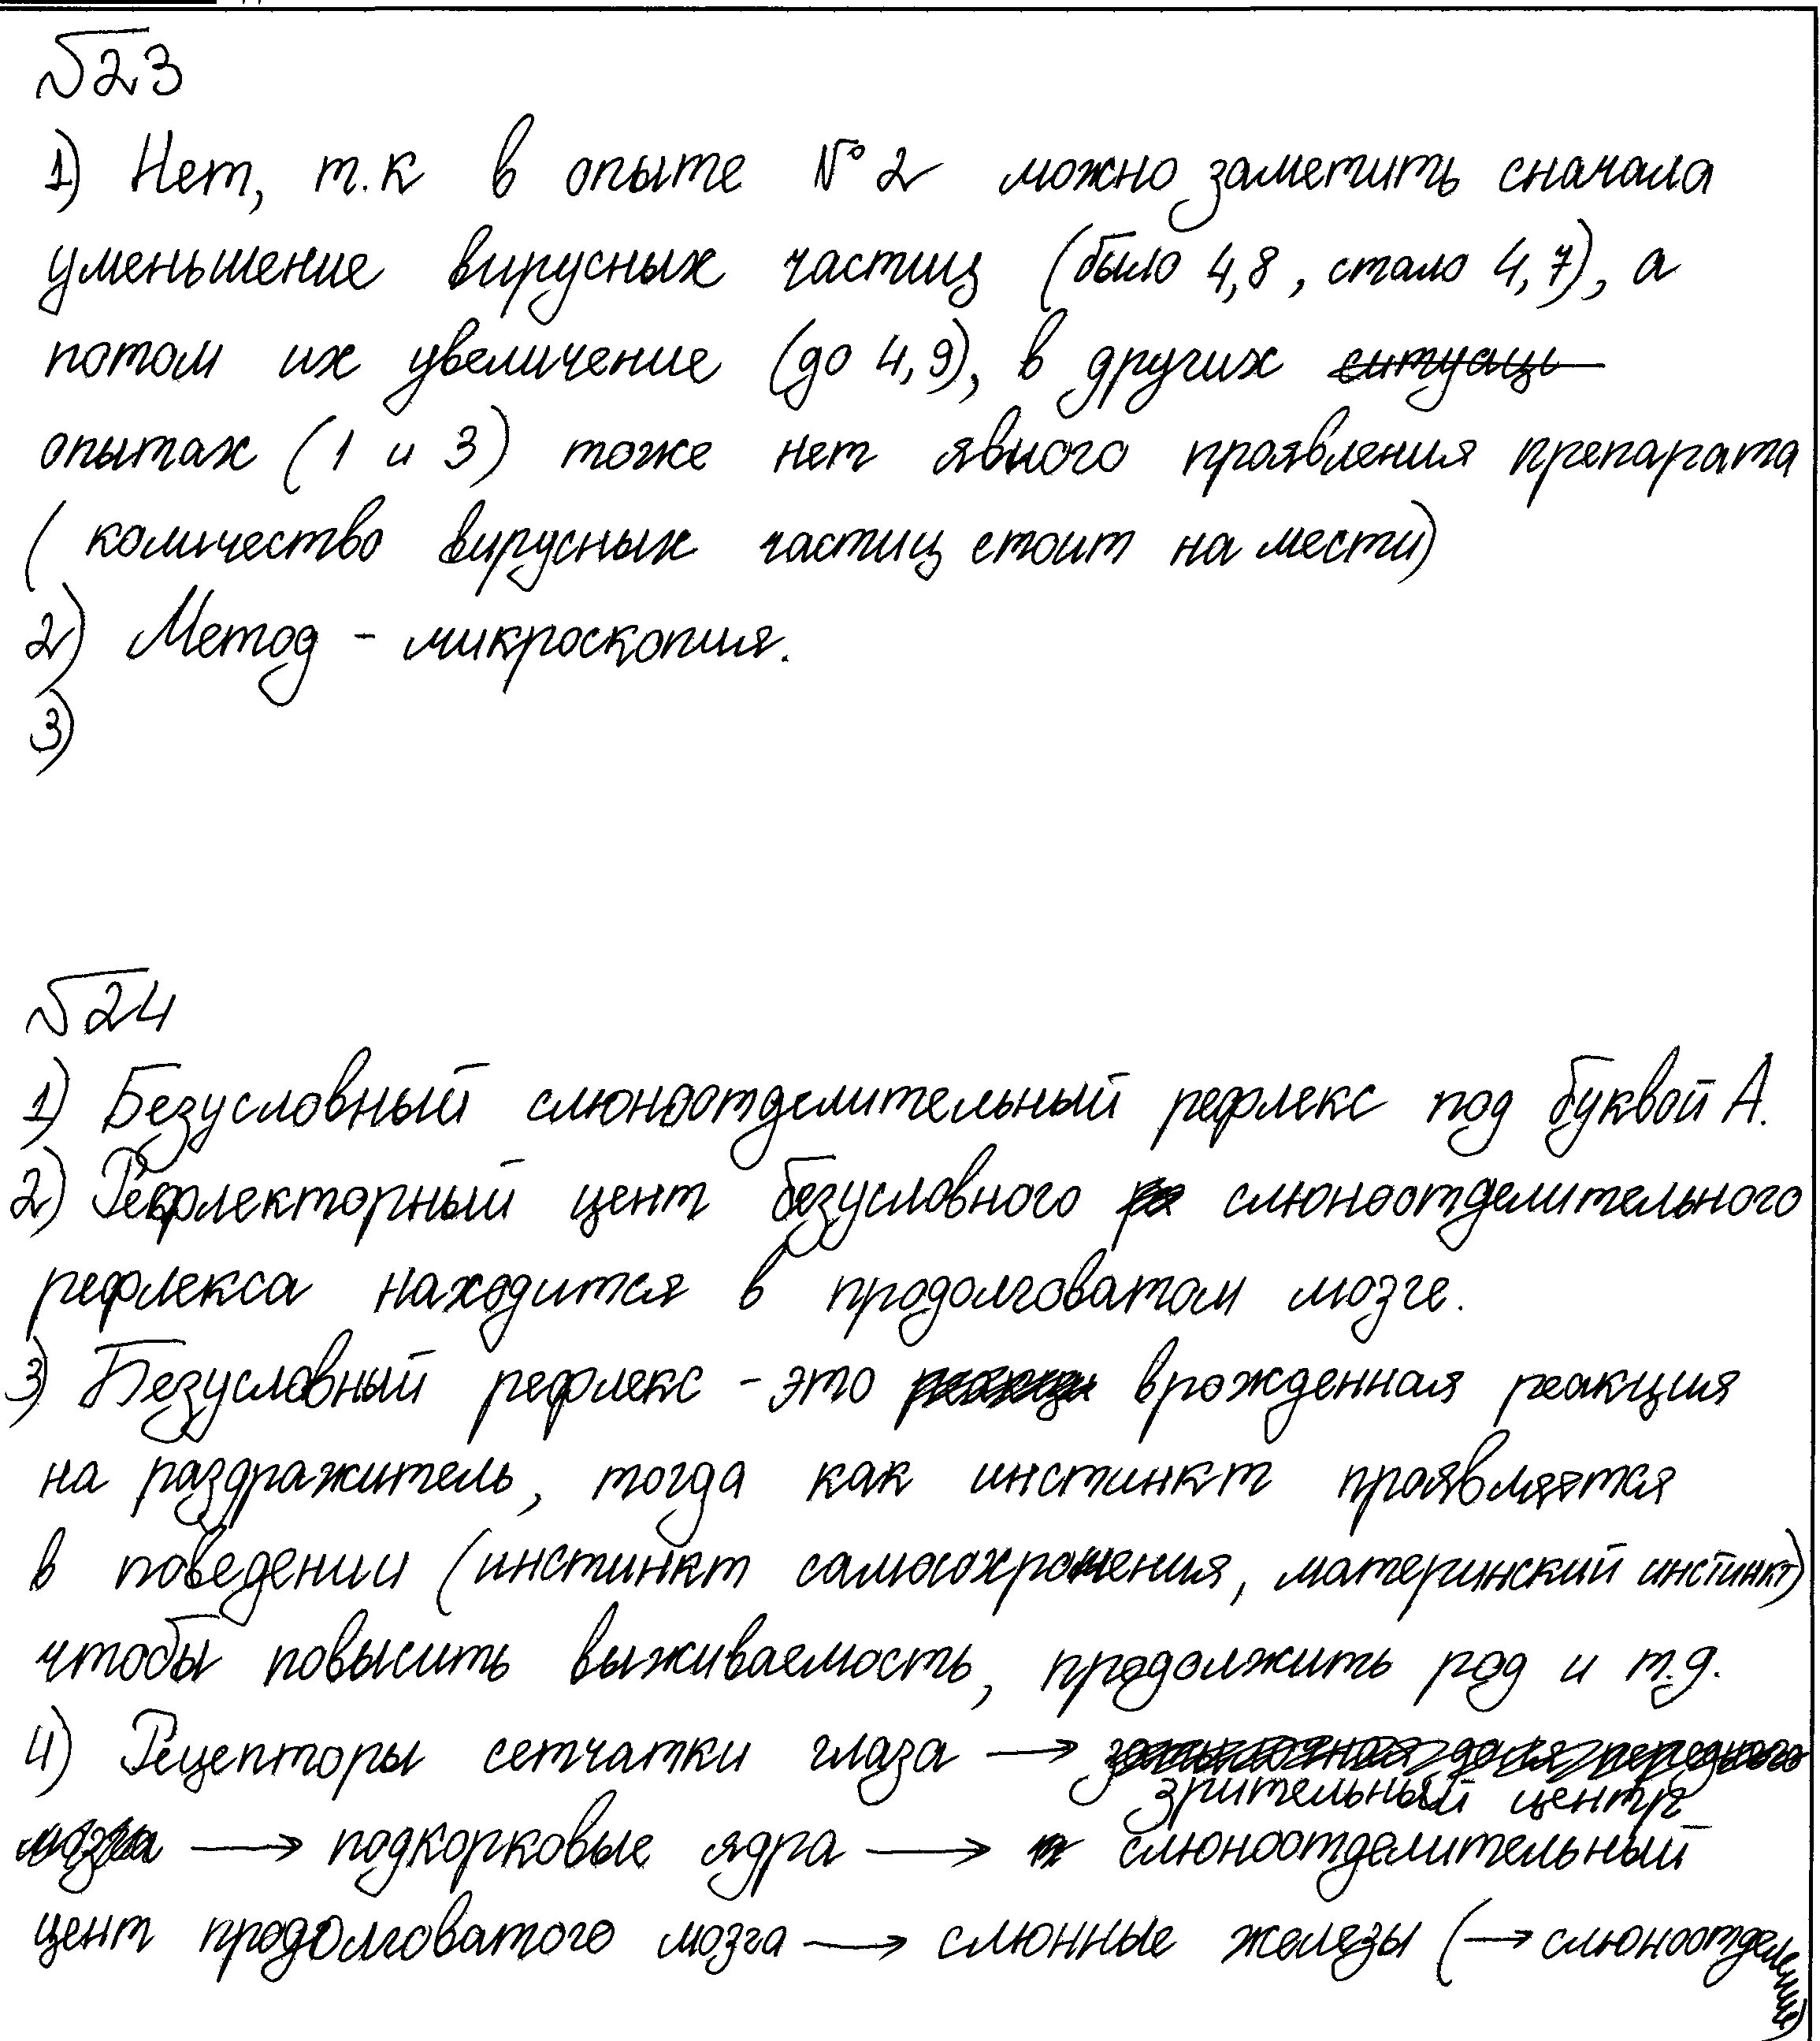 №23
1) Нет, т.к в опыте № 2 можно заметить сначала
уменьшение вирусных частиц (было 4,8, стало 4,7), а
потом их увеличение (до 4,9), в других ситуаци
опытах (1 и 3) тоже нет явного проявления препарата
(количество вирусных частиц стоит на мести)
2) Метод - микроскопия.
3)
№24
1) Безусловный слюноотделительный рефлекс под буквой А.
2) Рефлекторный цент безусловного слюноотделительного
рефлекса находится в продолговатом мозге.
3) Безусловный рефлекс - это врожденная реакция
на раздражитель, тогда как инстинкт проявляется
в поведении (инстинкт самосохронения, материнский инстинкт)
чтобы повысить выживаемость, продолжить род и т.д.
4) Рецепторы сетчатки глаза →
зрительный центр
→ подкорковые ядра → слюноотделительный
цент продолговатого мозга → слюнные железы (→ слюноотделение)